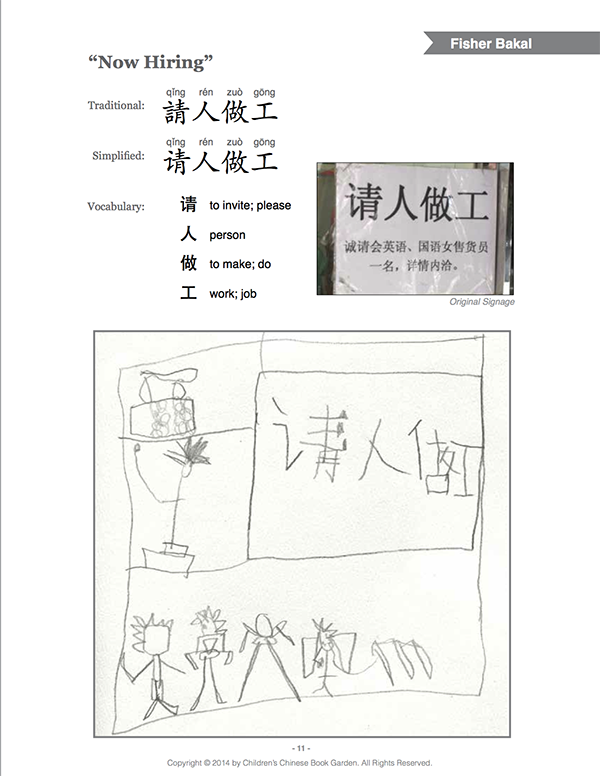 Fisher Bakal
“Now Hiring”
qǐng rén zuò gōng
Traditional: 請人做工
qǐng rén zuò gōng
Simplified: 请人做工
Vocabulary: 请 to invite; please
人 person
做 to make; do
工 work; job
请人做工
诚请会英语、国语女售货员
一名，详情内洽。
Original Signage
请人做工
- 11 -
Copyright © 2014 by Children's Chinese Book Garden. All Rights Reserved.